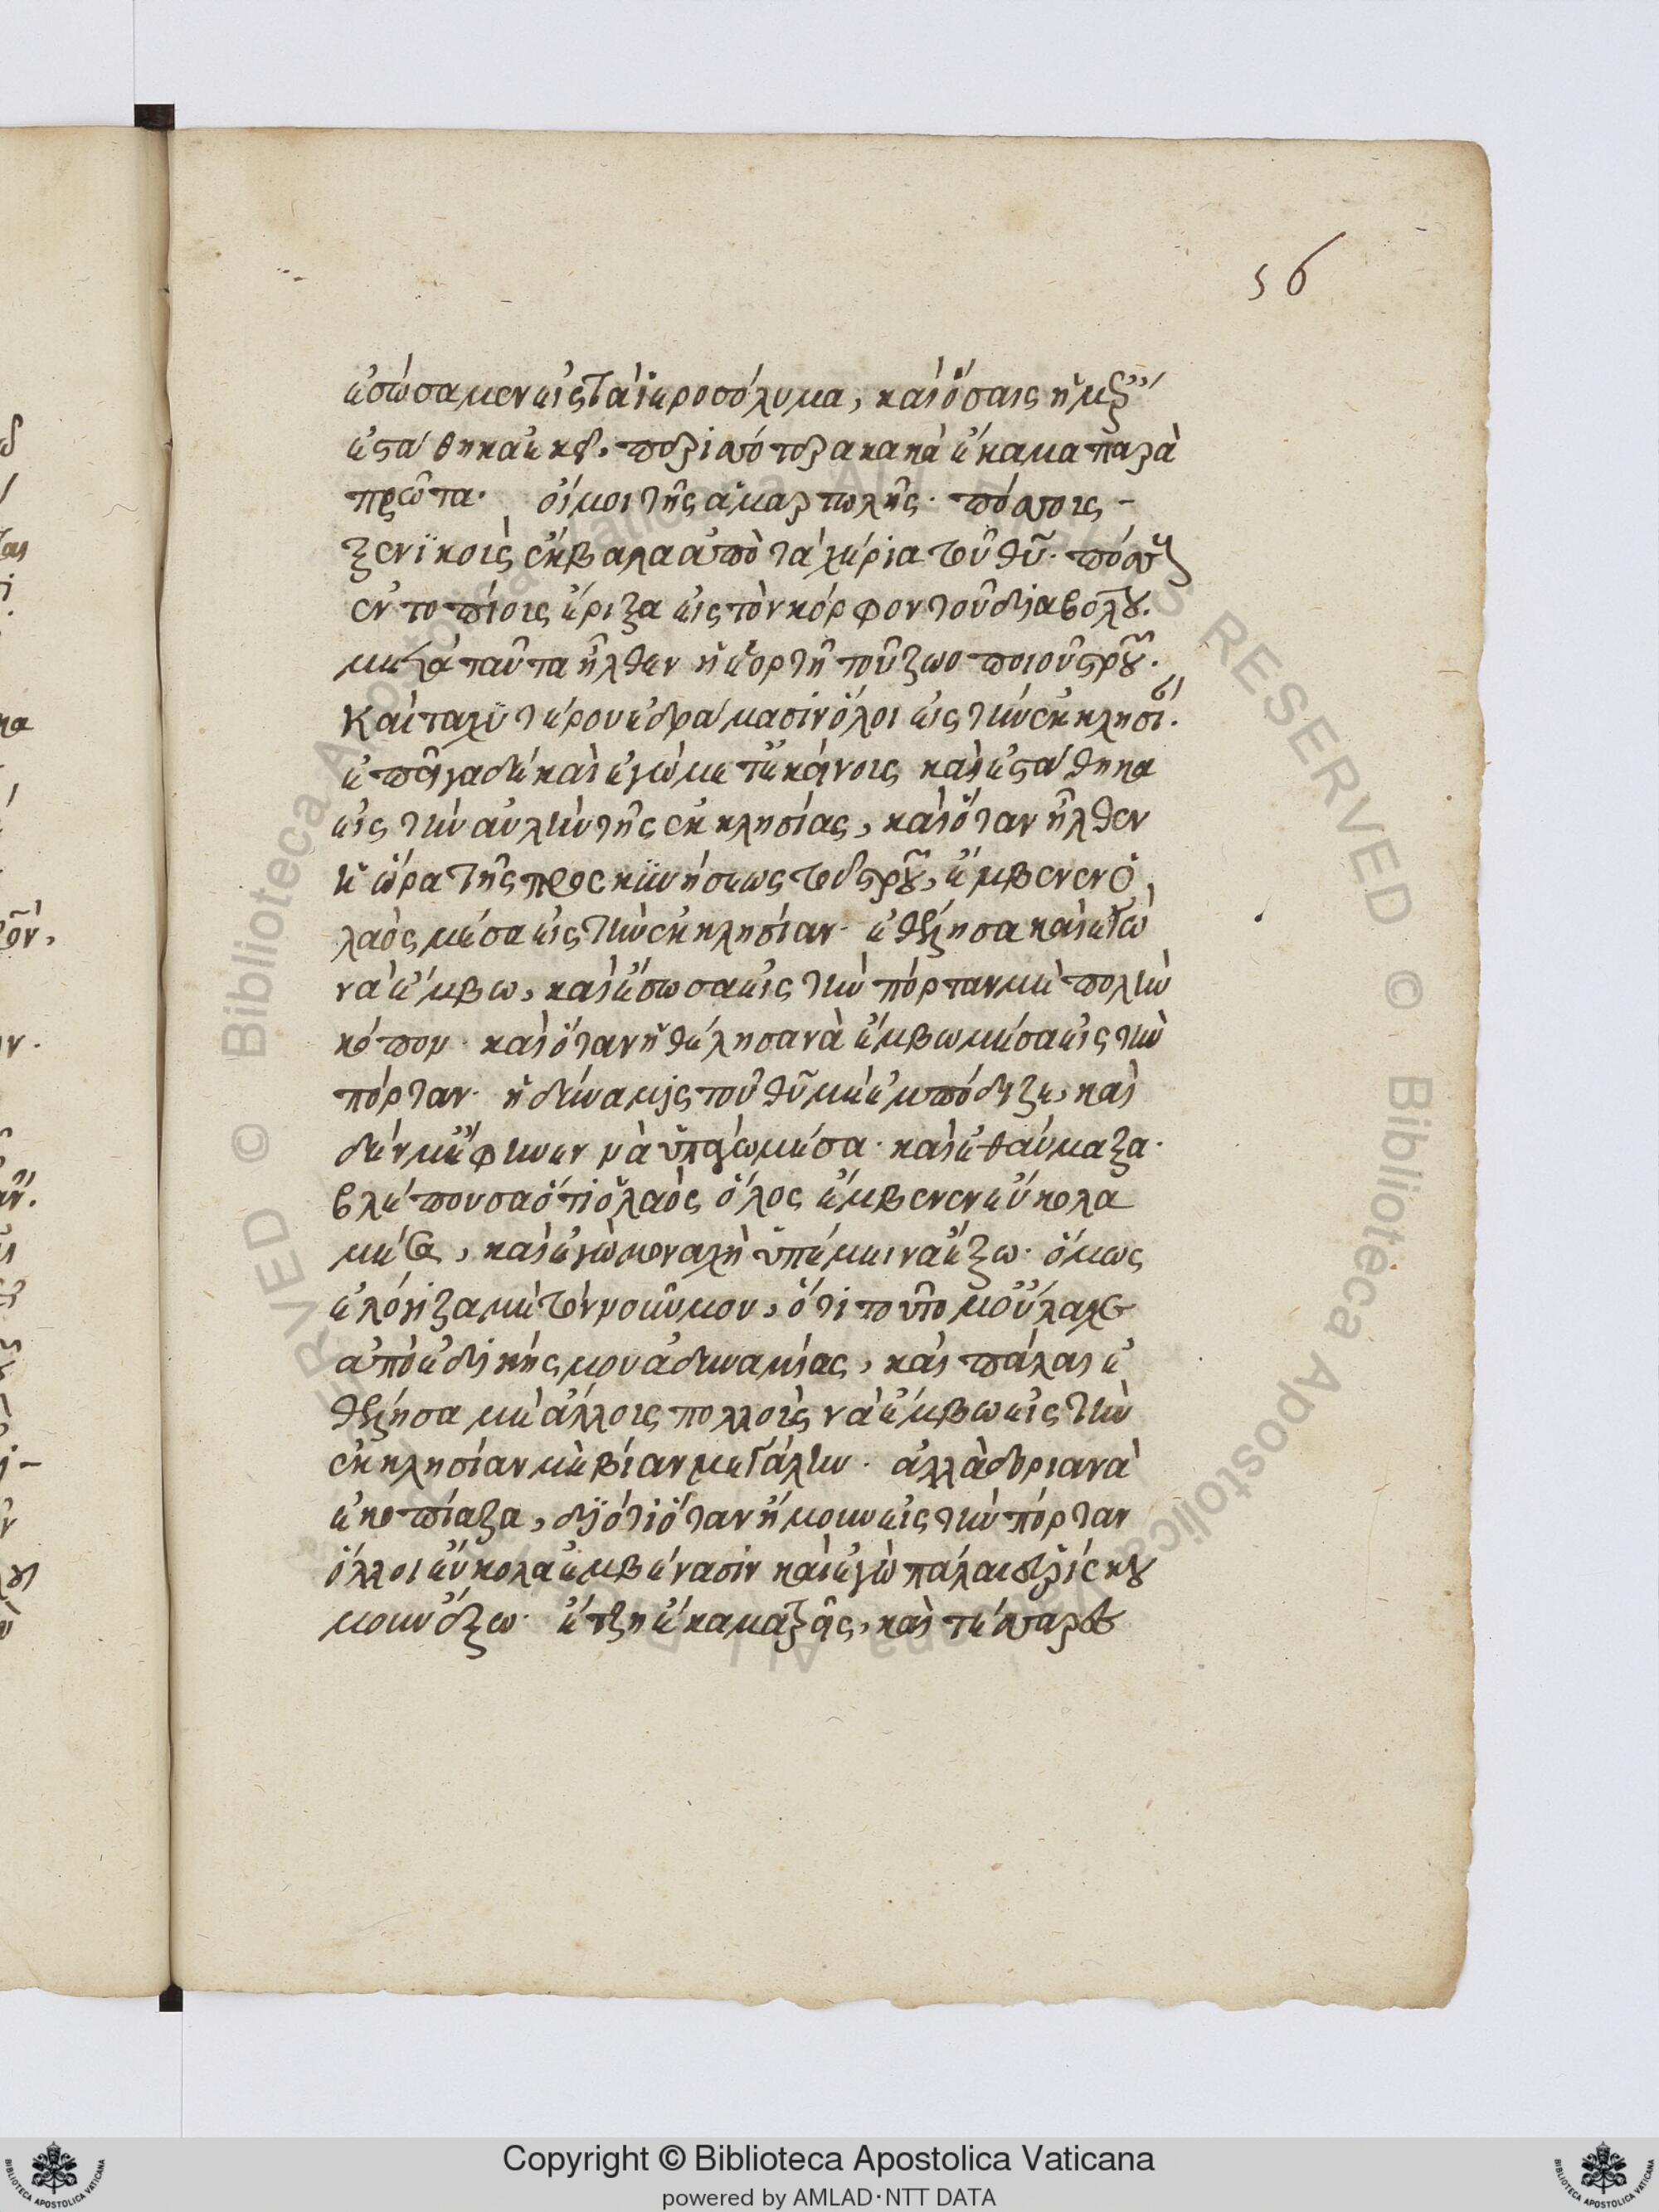 56
ἐσώσαμεν εἰς τὰ ἱεροσόλυμα, καὶ ὅσαις ἡμέρ
ἐστάθηκα ἐκεῖ, περισσότερα κακὰ ἔκαμα παρὰ
πρῶτα. οἴμοι τῆς ἁμαρτωλῆς. πόσοις –
ξενϊκοὶς ἔκβαλα ἀπὸ τὰ χέρια τοῦ θῦ. πόσους
ἐντοπίοις ἔριξα εἰς τὸν κόρφον τοῦ διαβόλου.
μετὰ ταῦτα ἦλθεν ἡ ἑορτὴ τοῦ ζωοποιοῦ στροῦ.
Καὶ ταχϋτέρου ἐδράμασιν ὅλοι εἰς τὴν ἐκκλησί.
ἐπῆγα δὲ καὶ ἐγὼ μετ' ἐκείνοις καὶ ἐστάθηκα
εἰς τὴν αὐλὴν τῆς ἐκκλησίας, καὶ ὅταν ἦλθεν
ἡ ὥρα τῆς προσκϋνήσεως τοῦ στροῦ, ἔμβενεν ὁ
λαὸς μέσα εἰς τὴν ἐκκλησίαν. ἐθέλησα καὶ ἐγὼ
νὰ ἔμβω, καὶ ἔσωσα εἰς τὴν πόρταν μὲ πολὺν
κόπον. καὶ ὅταν ἤθέλησα νὰ ἔμβω μέσα εἰς τὴν
πόρταν. ἡ δύναμις τοῦ θῦ μὲ ἐμπόδιζε, καὶ
δὲν μὲ ἄφινεν νὰ ὑπάγω μέσα. καὶ ἐθαύμαξα.
βλέπουσα ὅτι ὁ λαὸς ὅλος ἔμβενεν εὔκολα
μέσα, καὶ ἐγὼ μοναχὴ ὑπέμεινα ἔξω. ὅμως
ἐλόγιζα μὲ τὸν νοῦν μου, ὅτι τοῦτο μοῦ ἔλαχε
ἀπὸ ἐδικῆς μου ἀδυναμίας, καὶ πάλαι ἐ
θέλησα μὲ ἄλλοις πολλοὶς νὰ ἔμβω εἰς τὴν
ἐκκλησίαν μὲ βίαν μεγάλην. ἀλλὰ δωριανὰ
ἐκοπίαζα, δϊότι ὅταν ἤμουν εἰς τὴν πόρταν
ὅλλοι εὔκολα ἐμβένασιν καὶ ἐγὼ πάλαι εὑρίσκου
μουν ὄξω. ἔτζη ἔκαμα τρεῖς, καὶ τέσσαρες
Copyright © Biblioteca Apostolica Vaticana
powered by AMLAD·NTT DATA